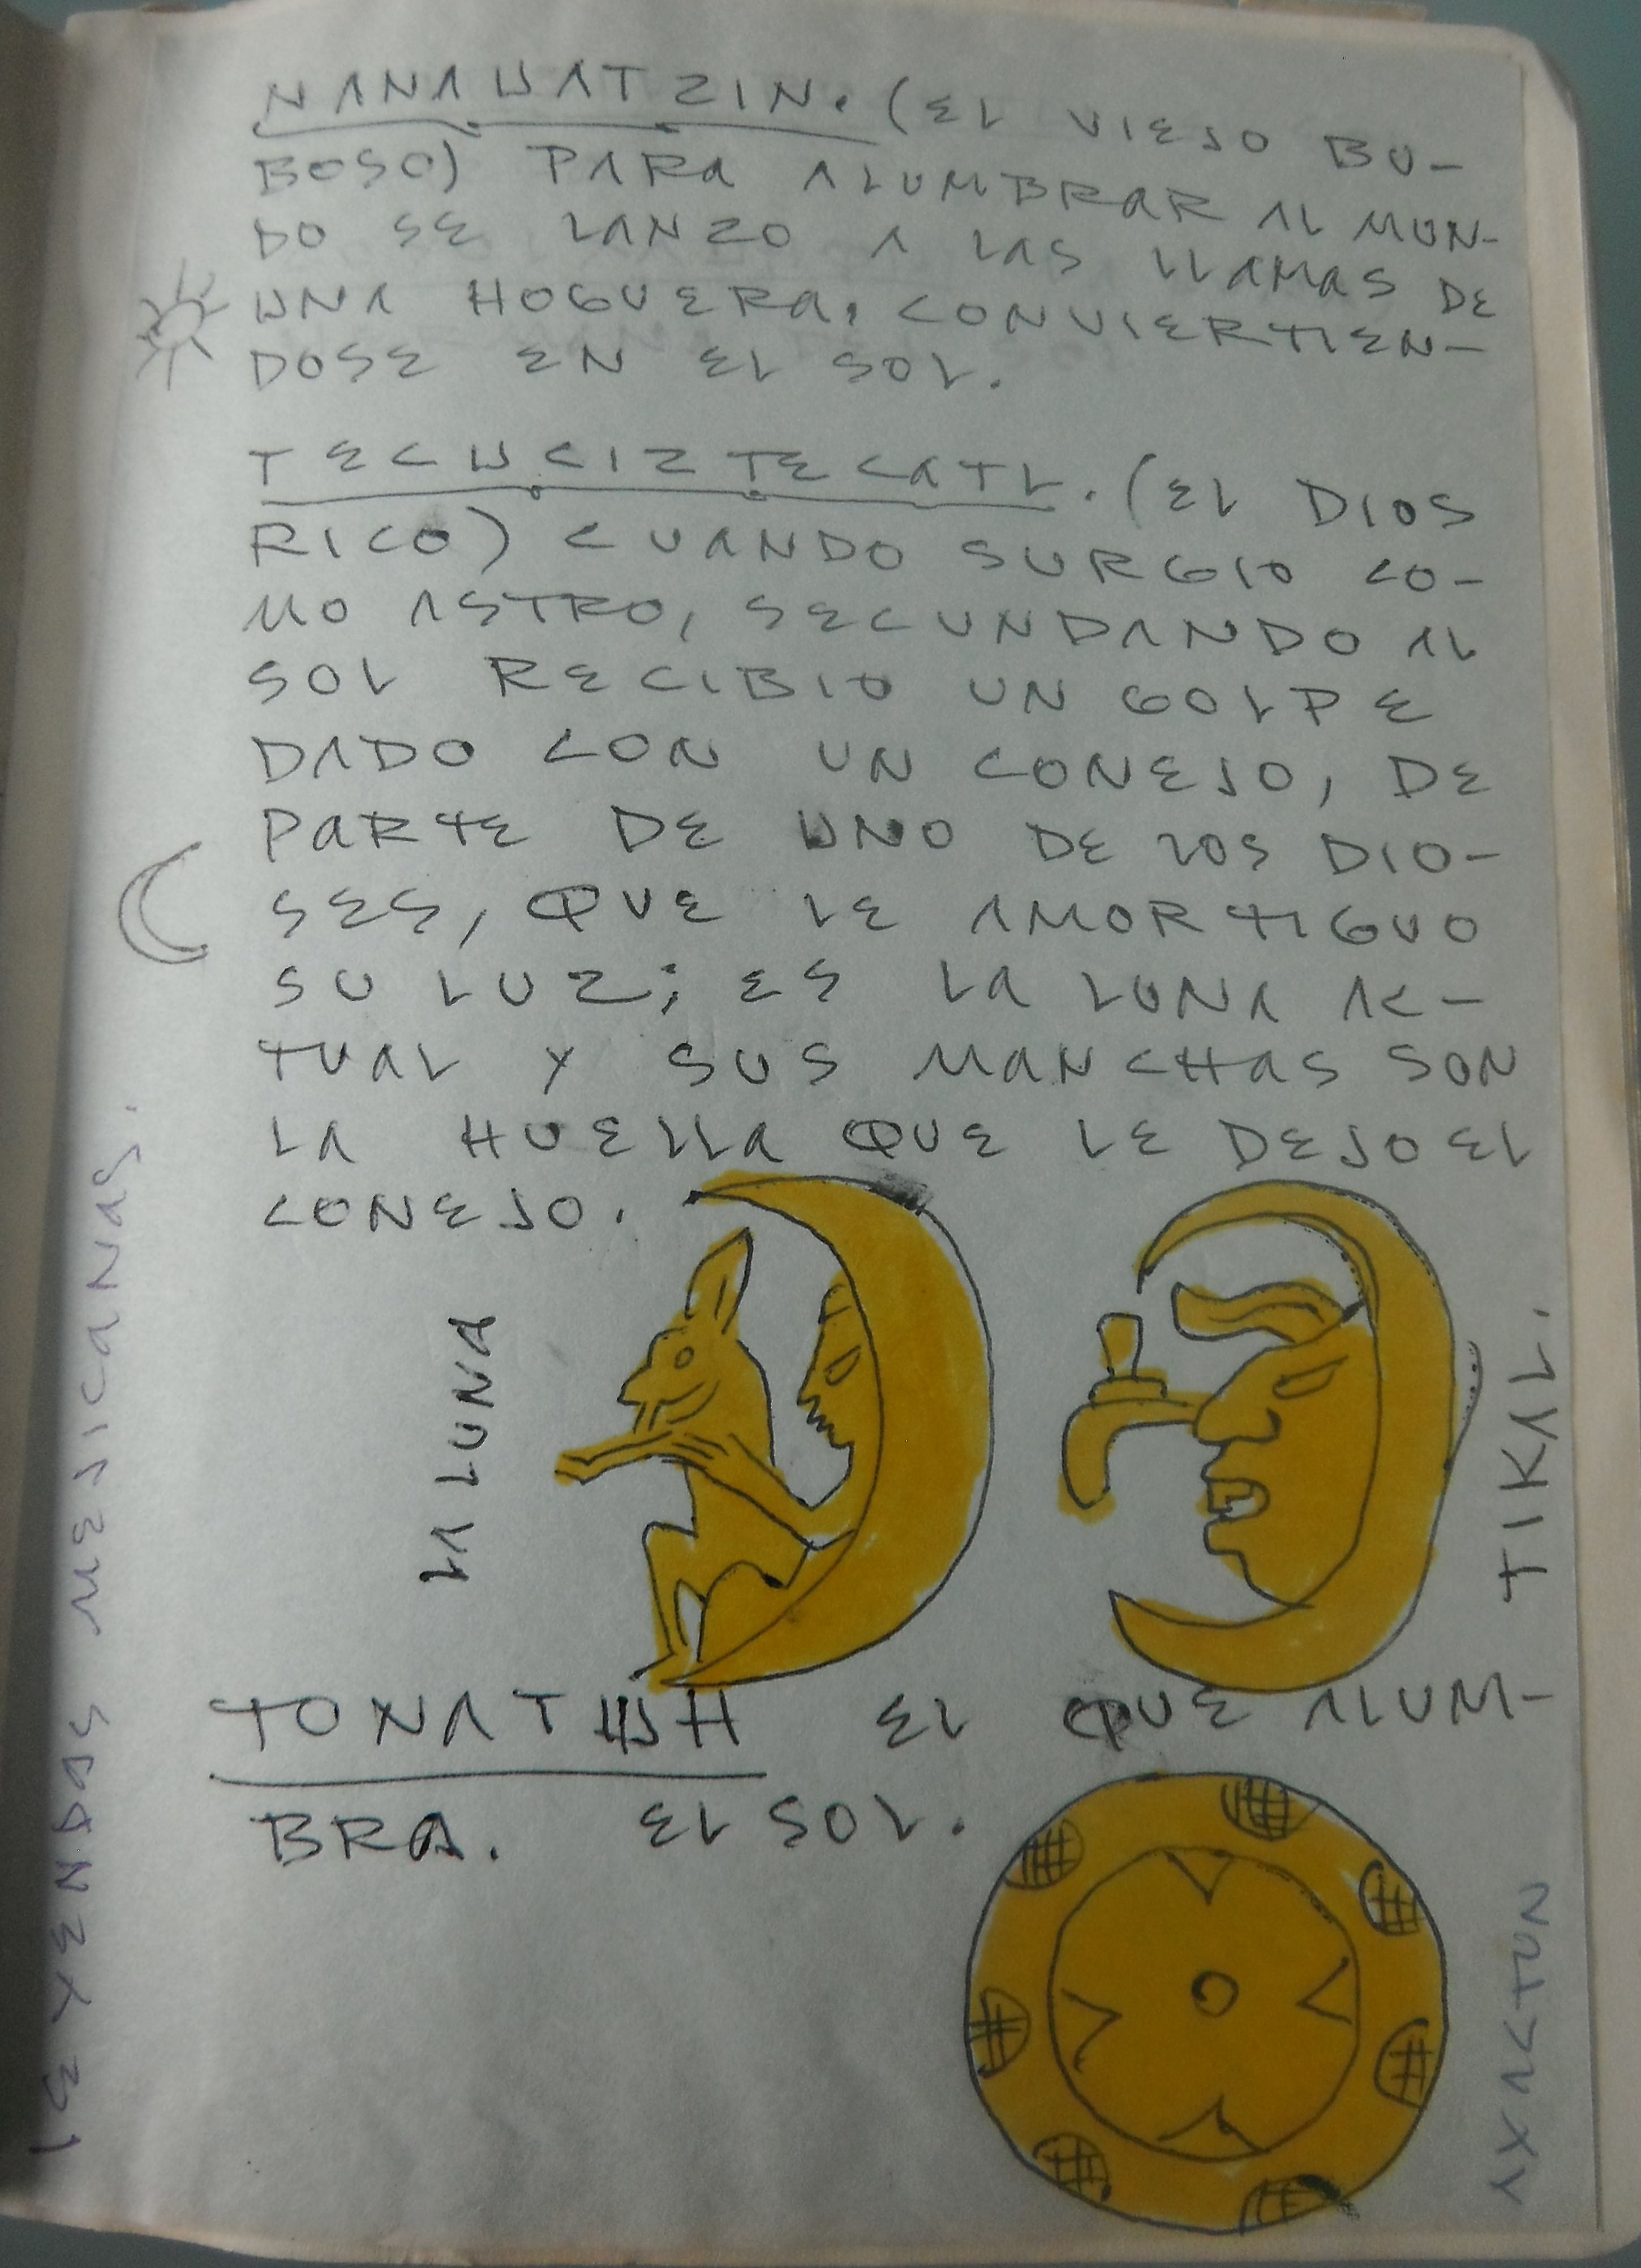 NANAUATZIN. (EL VIEJO BU-
BOSO) PARA ALUMBRAR AL MUN-
DO SE LANZO A LAS LLAMAS DE
UNA HOGUERA, CONVIERTIEN-
DOSE EN EL SOL.
TECUCIZTECATL. (EL DIOS
RICO) CUANDO SURGIO CO-
MO ASTRO, SECUNDANDO AL
SOL RECIBIO UN GOLPE
DADO CON UN CONEJO, DE
PARTE DE UNO DE LOS DIO-
SES, QUE LE AMORTIGUO
SU LUZ; ES LA LUNA AC-
TUAL Y SUS MANCHAS SON
LA HUELLA QUE LE DEJO EL
CONEJO.
LA LUNA
TIKAL.
TONATIUH EL QUE ALUM-
BRA. EL SOL.
AXACTUN
LEYENDAS MEJICANAS.